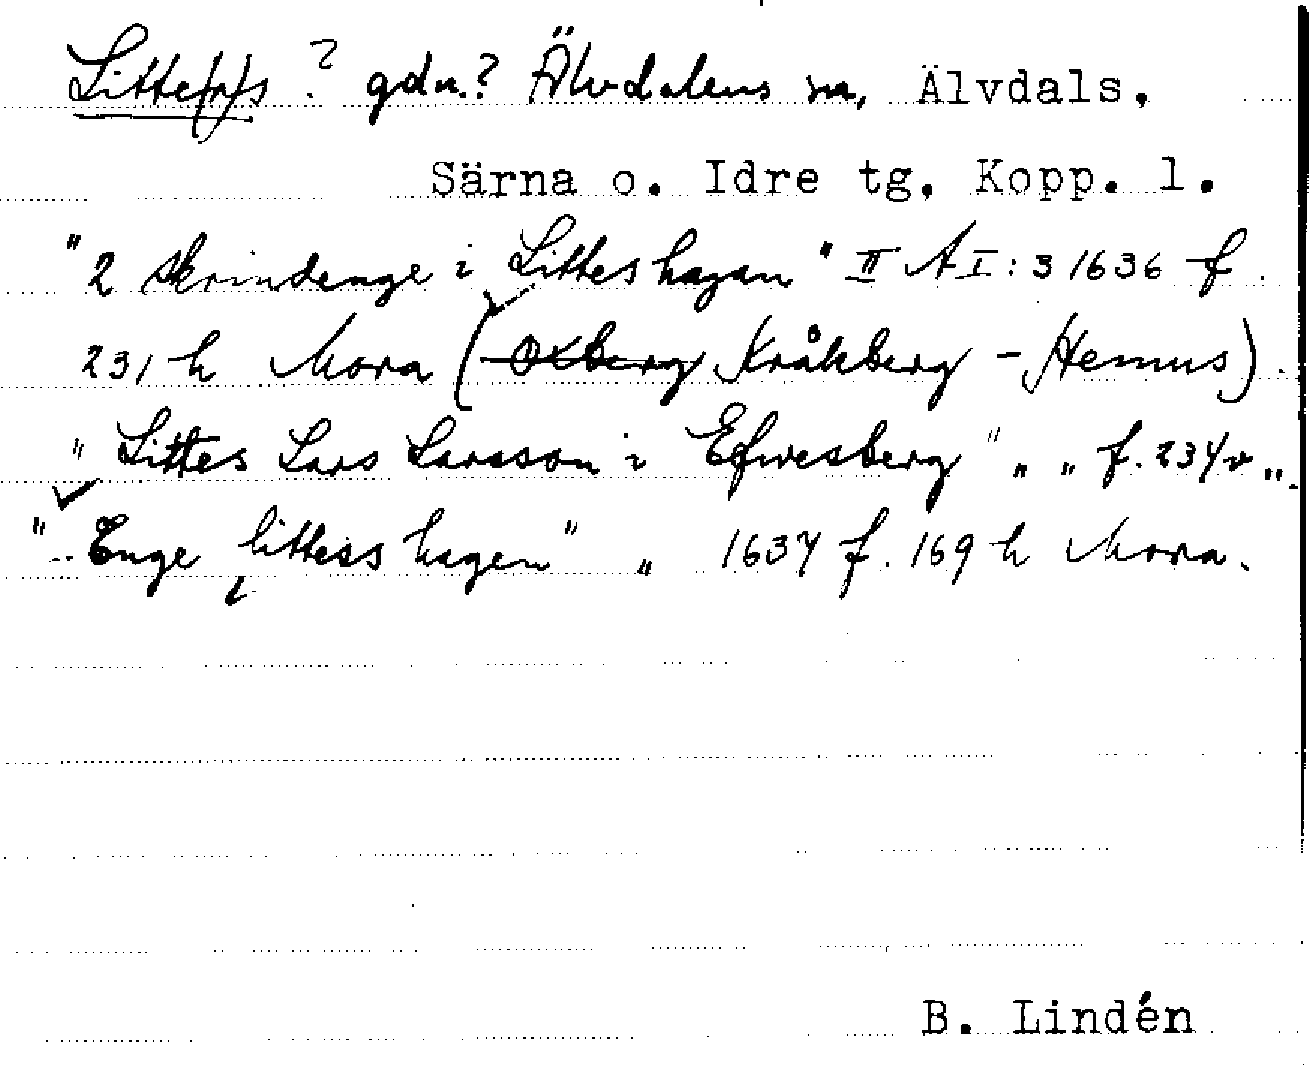 Litte(r)s ? gdn.? Älvdalens sn, Älvdals,
Särna o. Idre tg, Kopp. l.
"2 skrindenge i Litteshagan" II A I:3 1636 f.
231 h Mora (Oxberg Kråkberg - Hemus).
"Littes Lars Larsson i Efwesberg" „ „ f. 234 v „.
"Enge littess hagen" „ 1637 f. 169 h Mora.
B. Lindén